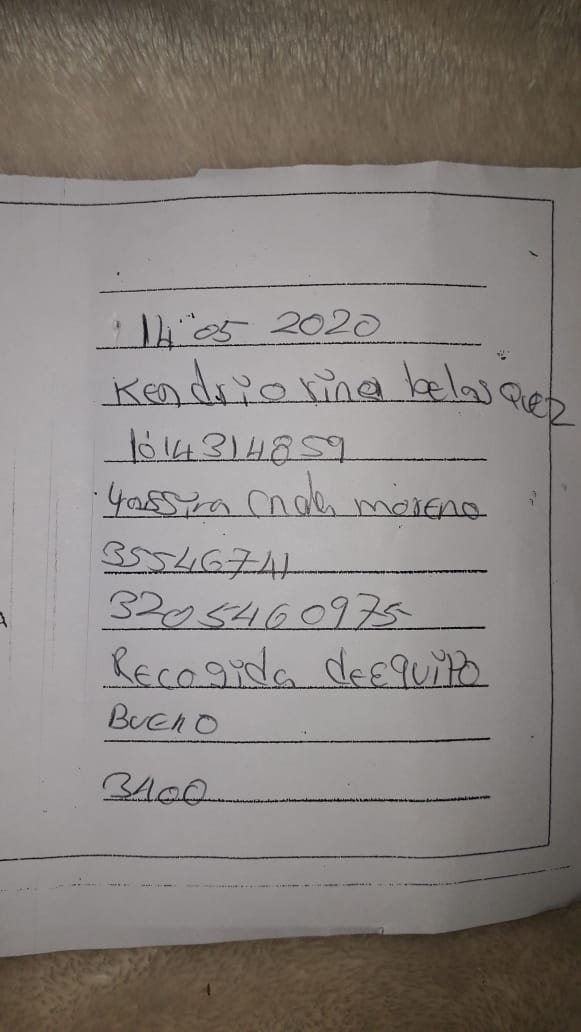 14 05 2020
Kendrio rina belasquez
1014314859
Yassira moreno
35546741
3205460975
Recogida deEquipo
BUENO
3400